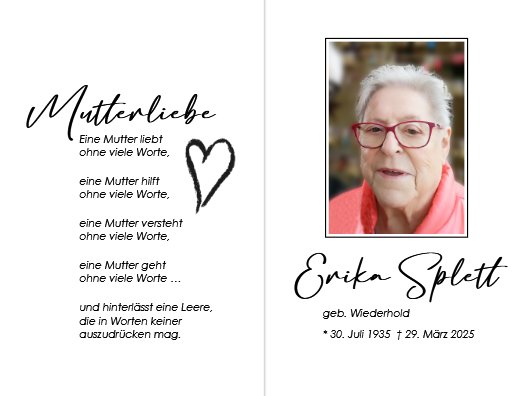 Mutterliebe
Eine Mutter liebt
ohne viele Worte,
eine Mutter hilft
ohne viele Worte,
eine Mutter versteht
ohne viele Worte,
eine Mutter geht
ohne viele Worte ...
und hinterlässt eine Leere,
die in Worten keiner
auszudrücken mag.
Erika Splett
geb. Wiederhold
* 30. Juli 1935 † 29. März 2025